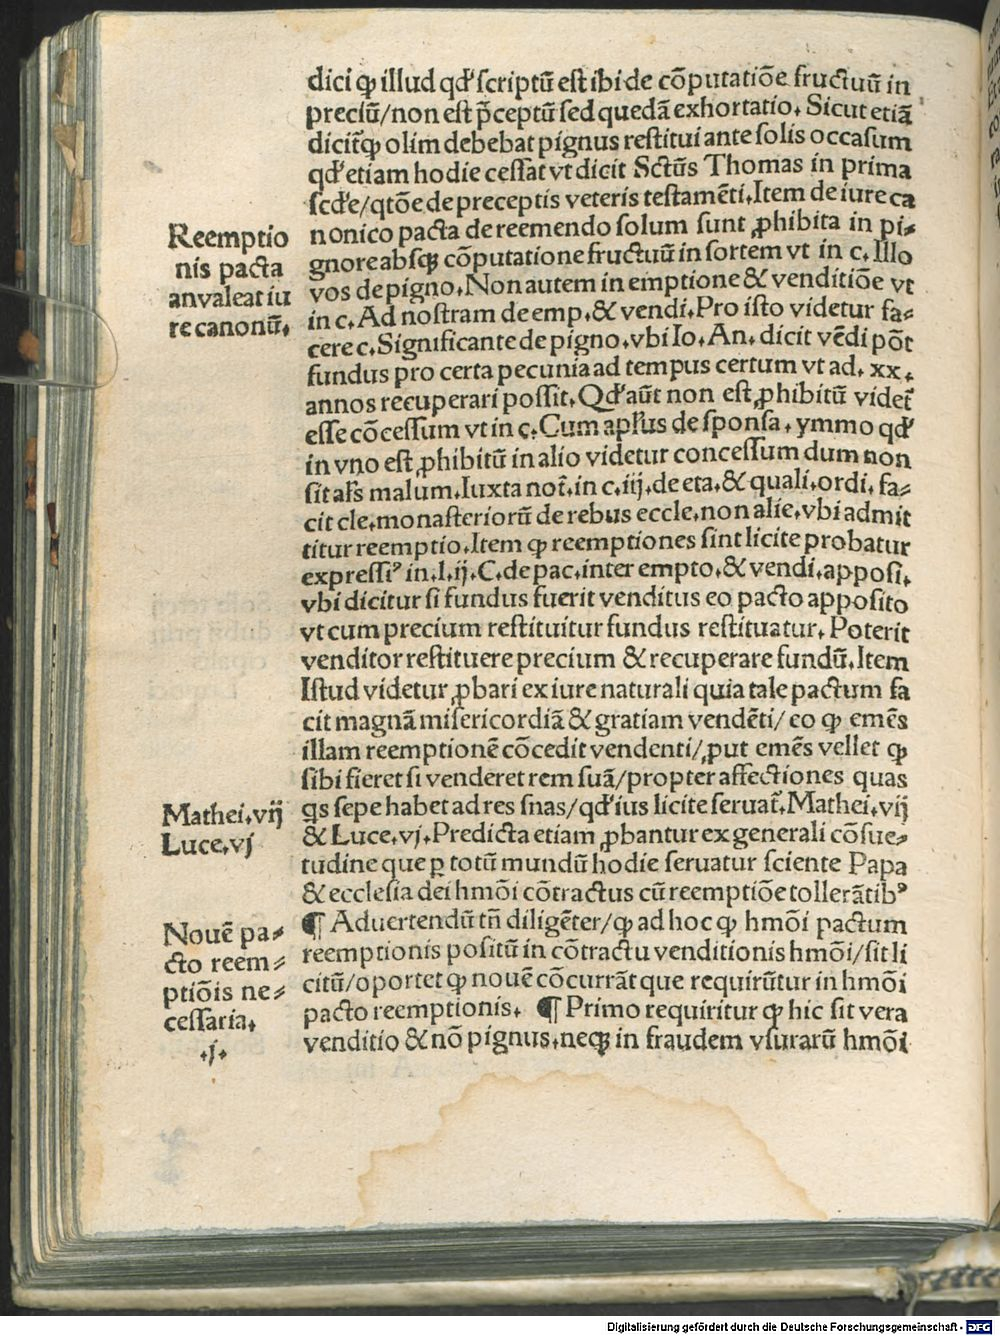 dici ꝙ illud qđ scriptū est ibi de cōputatiōe fructuū in
preciū/non est p̄ceptū sed quedā exhortatio. Sicut etiā
dicit̃ ꝙ olim debebat pignus restitui ante solis occasum
qđ etiam hodie cessat vt dicit Sctūs Thomas in prima
scđe/qtōe de preceptis veteris testamēti. Item de iure ca
nonico pacta de reemendo solum sunt ꝓhibita in pi⸗
gnore absqꝫ cōputatione fructuū in sortem vt in c. Illo
vos de pigno. Non autem in emptione & venditiōe vt
in c. Ad nostram de emp. & vendi. Pro isto videtur fa⸗
cere c. Significante de pigno. vbi Io. An. dicit vēdi pōt
fundus pro certa pecunia ad tempus certum vt ad. xx.
annos recuperari possit. Qđ aūt non est ꝓhibitū videt̃
esse cōcessum vt in c. Cum apłus de sponsa. ymmo qđ
in vno est ꝓhibitū in alio videtur concessum dum non
sit ałs malum. Iuxta not̃. in c. iij. de eta. & quali. ordi. fa⸗
cit cle. monasteriorū de rebus eccle. non alie. vbi admit
titur reemptio. Item ꝙ reemptiones sint licite probatur
expressiꝰ in. l. ij. C. de pac. inter empto. & vendi. apposi.
vbi dicitur si fundus fuerit venditus eo pacto apposito
vt cum precium restituitur fundus restituatur. Poterit
venditor restituere precium & recuperare fundū. Item
Istud videtur ꝓbari ex iure naturali quia tale pactum fa
cit magnā misericordiā & gratiam vendēti/ eo ꝙ emēs
illam reemptionē cōcedit vendenti/ ꝓut emēs vellet ꝙ
sibi fieret si venderet rem suā/propter affectiones quas
qs sepe habet ad res snas/qđ ius licite seruat̃. Mathei. vij
& Luce. vj. Predicta etiam ꝓbantur ex generali cōsue⸗
tudine que ꝑ totū mundū hodie seruatur sciente Papa
& ecclesia dei hmōi cōtractus cū reemptiōe tollerātibꝰ
¶ Aduertendū tñ diligēter/ꝙ ad hoc ꝙ hmōi pactum
reemptionis positū in cōtractu venditionis hmōi/sit li
citū/oportet ꝙ nouē cōcurrāt que requirūtur in hmōi
pacto reemptionis. ¶ Primo requiritur ꝙ hic sit vera
venditio & nō pignus. neqꝫ in fraudem vsurarū hmōi
Reemptio
nis pacta
an valeat iu
re canonū.
Mathei. vij
Luce. vj
Nouē pa⸗
cto reem⸗
ptiōis ne⸗
cessaria.
.j.
Digitalisierung gefördert durch die Deutsche Forschungsgemeinschaft - DFG